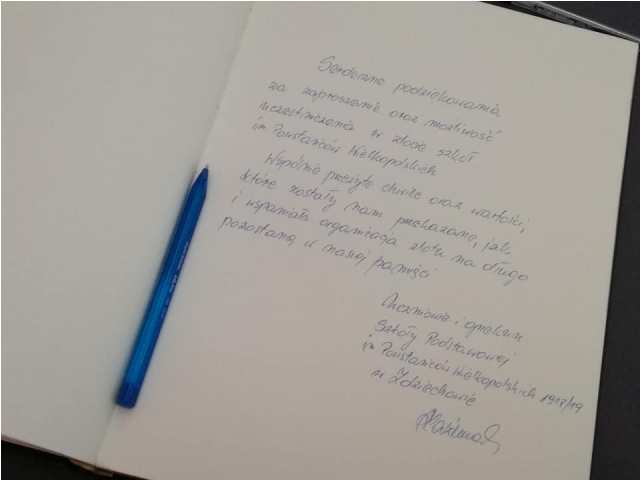 Serdeczne podziękowania
za zaproszenie oraz możliwość
uczestniczenia w zlocie szkół
im Powstańców Wielkopolskich
Wspólnie przeżyte chwile oraz wartości,
które zostały nam przekazane, jak
i wspaniała organizacja zlotu na długo
pozostaną w naszej pamięci
Uczniowie i opiekun
Szkoły Podstawowej
im Powstańców Wielkopolskich 1918/19
w Zdziechowie